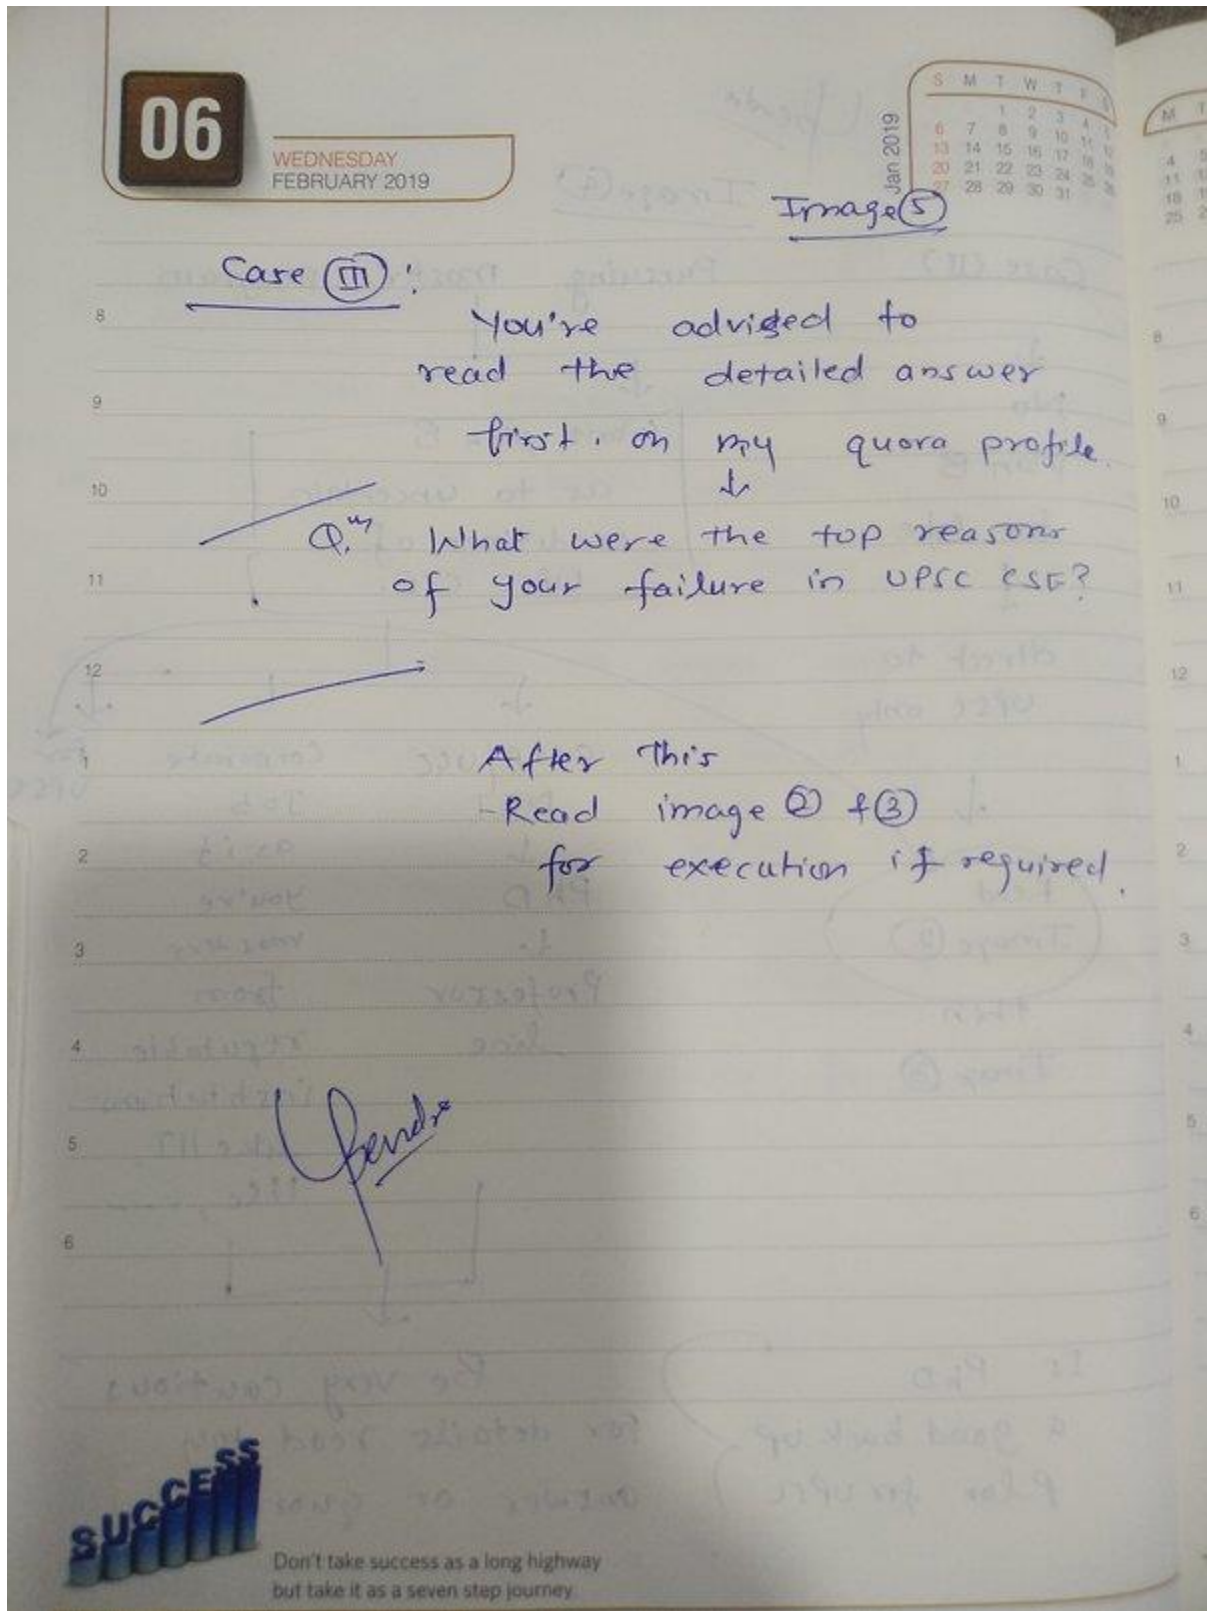 06
WEDNESDAY
FEBRUARY 2019
Jan 2019
S M T W T F S
1 2 3 4 5
6 7 8 9 10 11 12
13 14 15 16 17 18 19
20 21 22 23 24 25 26
27 28 29 30 31
Image 5
Case III :
You're advised to
read the detailed answer
first. on my quora profile.
Q. What were the top reasons
of your failure in UPSC CSE?
After This
Read image 2 & 3
for execution if required.
8
9
10
11
12
1
2
3
4
5
6
SUCCESS
Don't take success as a long highway
but take it as a seven step journey.